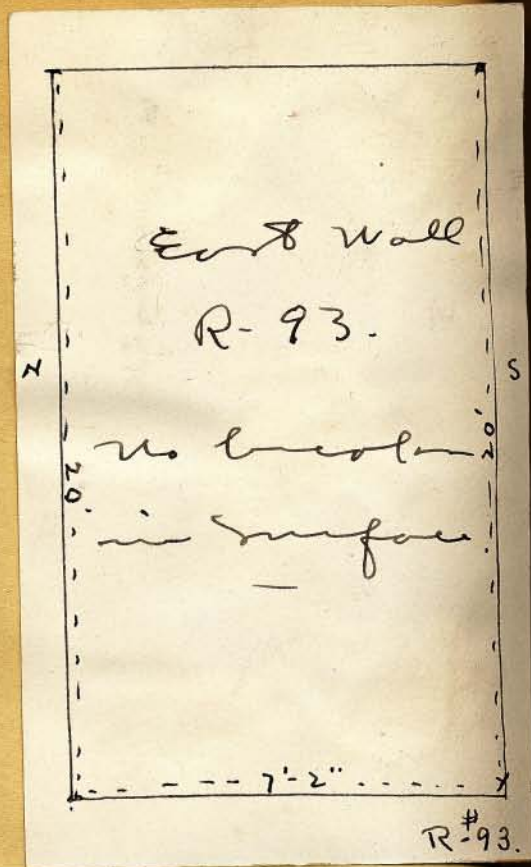 East Wall
R-93.
N
S
20'
20'
No breaks
in surface
7'-2"
R-#93.